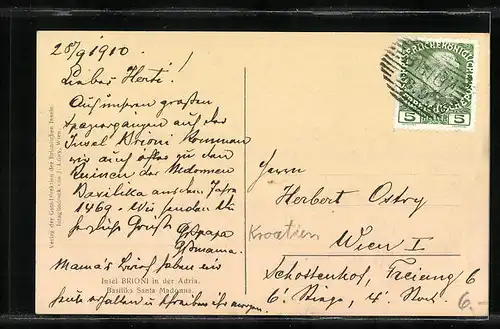 28/9 1910.
Lieber Herti!
Auf unseren großen
Spaziergängen auf der
Insel Brioni kommen
wir auch öfter zu den
Ruinen der Madonnen
Basilika aus dem Jahre
1469. Wir senden Dir
herzliche Grüße
Großpapa
Großmama.
Mama's Brief haben wir
heute erhalten u. schreiben ihr morgen.
Insel BRIONI in der Adria.
Basilika Santa Madonna.
Verlag der Gutsdirektion der Brionischen Inseln.
Wien.
5 5
Herrn
Herbert Ostry
Kroatien
Wien I
Schottenhof, Freiung 6
6. Stiege, 4. Stock
6.-